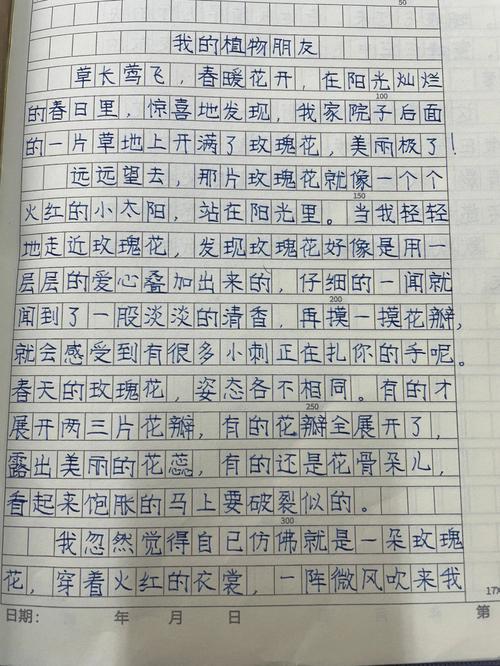 50
我的植物朋友
草长莺飞，春暖花开，在阳光灿烂
100
的春日里，惊喜地发现，我家院子后面
的一片草地上开满了玫瑰花，美丽极了！
远远望去，那片玫瑰花就像一个个
150
火红的小太阳，站在阳光里。当我轻轻
地走近玫瑰花，发现玫瑰花好像是用一
层层的爱心叠加出来的，仔细的一闻就
200
闻到了一股淡淡的清香，再摸一摸花瓣，
就会感受到有很多小刺正在扎你的手呢。
春天的玫瑰花，姿态各不相同。有的才
250
展开两三片花瓣，有的花瓣全展开了，
露出美丽的花蕊，有的还是花骨朵儿，
看起来饱胀的马上要破裂似的。
300
我忽然觉得自己仿佛就是一朵玫瑰
花，穿着火红的衣裳，一阵微风吹来我
日期： 年 月 日 第